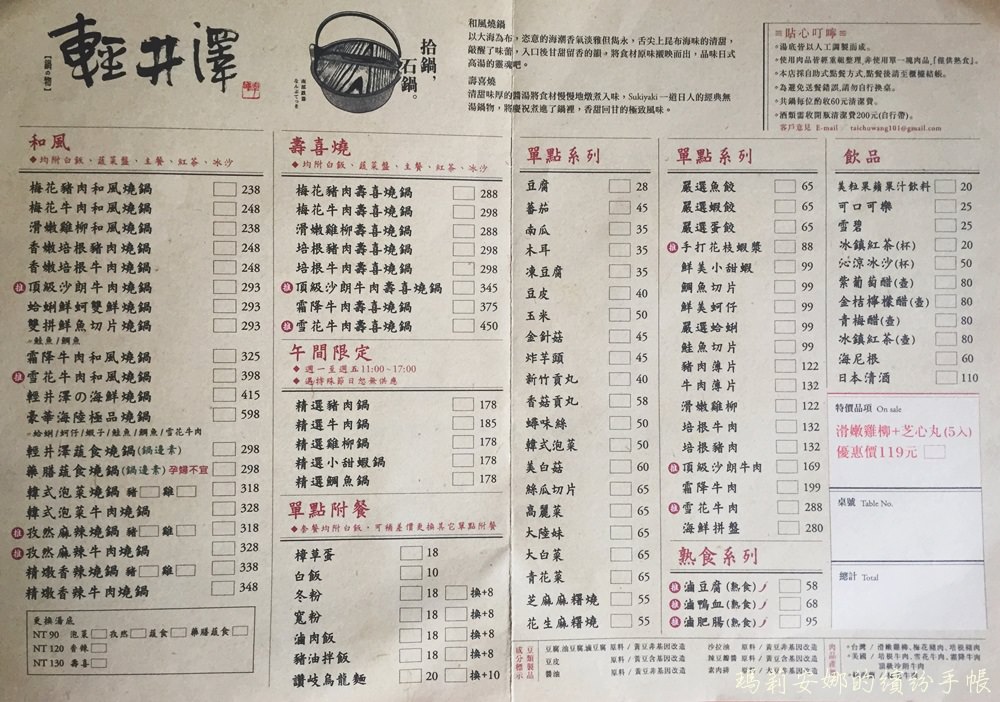 【鍋の物】
輕井澤
拾鍋，
石鍋。
南部鉄器
なんぶてっき
和風燒鍋
以大海為布，恣意的海潮香氣淡雅但雋永，舌尖上昆布海味的清甜，
敲醒了味蕾，入口後甘甜留香的韻。將食材原味襯映而出，品味日式
高湯的靈魂吧。
壽喜燒
清甜味厚的醬湯將食材慢慢地燉煮入味，Sukiyaki 一道日人的經典無
湯鍋物，將慶祝煮進了鍋裡，香甜回甘的極致風味。
貼心叮嚀
•湯底皆以人工調製而成。
•使用肉品皆經重組整理，非使用單一塊肉品，『僅供熟食』。
•本店採自助式點餐方式，點餐後請至櫃檯結帳。
•為避免送餐錯誤，請勿自行換桌。
•共鍋每位酌收60元清潔費。
•酒類需收開瓶清潔費200元(自行帶)。
客戶意見 E-mail / taichuwang101@gmail.com
和風
◆均附白飯、蔬菜盤、主餐、紅茶、冰沙
梅花豬肉和風燒鍋 238
梅花牛肉和風燒鍋 248
滑嫩雞柳和風燒鍋 238
香嫩培根豬肉燒鍋 248
香嫩培根牛肉燒鍋 248
推 頂級沙朗牛肉燒鍋 293
蛤蜊鮮蚵雙鮮燒鍋 293
雙拼鮮魚切片燒鍋 293
鮭魚/鯛魚
霜降牛肉和風燒鍋 325
推 雪花牛肉和風燒鍋 398
輕井澤の海鮮燒鍋 415
豪華海陸極品燒鍋 598
蛤蜊/蚵仔/蝦子/鮭魚/鯛魚/雪花牛肉
輕井澤蔬食燒鍋(鍋邊素) 298
藥膳蔬食燒鍋(鍋邊素)孕婦不宜 298
韓式泡菜燒鍋 豬 雞 318
韓式泡菜牛肉燒鍋 328
推 孜然麻辣燒鍋 豬 雞 318
推 孜然麻辣牛肉燒鍋 328
精燉香辣燒鍋 豬 雞 338
精燉香辣牛肉燒鍋 348
更換湯底
NT 90 泡菜 孜然 蔬食 藥膳蔬食
NT 120 香辣
NT 130 壽喜
壽喜燒
◆均附白飯、蔬菜盤、主餐、紅茶、冰沙
梅花豬肉壽喜燒鍋 288
梅花牛肉壽喜燒鍋 298
滑嫩雞柳壽喜燒鍋 288
培根豬肉壽喜燒鍋 298
培根牛肉壽喜燒鍋 298
推 頂級沙朗牛肉壽喜燒鍋 345
霜降牛肉壽喜燒鍋 375
推 雪花牛肉壽喜燒鍋 450
午間限定
◆週一至週五11:00~17:00
◆遇特殊節日恕無供應
精選豬肉鍋 178
精選牛肉鍋 185
精選雞柳鍋 178
精選小甜蝦鍋 178
精選鯛魚鍋 178
單點附餐
◆套餐均附白飯，可補差價更換其它單點附餐
樟草蛋 18
白飯 10
冬粉 18 換+8
寬粉 18 換+8
滷肉飯 18 換+8
豬油拌飯 18 換+8
讚岐烏龍麵 20 換+10
單點系列
豆腐 28
蕃茄 45
南瓜 35
木耳 35
凍豆腐 35
豆皮 40
玉米 50
金針菇 45
炸芋頭 45
新竹貢丸 40
香菇貢丸 58
蟳味絲 50
韓式泡菜 50
美白菇 60
絲瓜切片 65
高麗菜 65
大陸妹 65
大白菜 65
青花菜 65
芝麻麻糬燒 55
花生麻糬燒 55
單點系列
嚴選魚餃 65
嚴選蝦餃 65
嚴選蛋餃 65
推 手打花枝蝦漿 88
鮮美小甜蝦 99
鯛魚切片 99
鮮美蚵仔 99
嚴選蛤蜊 99
鮭魚切片 99
豬肉薄片 122
牛肉薄片 132
滑嫩雞柳 122
培根牛肉 132
培根豬肉 132
推 頂級沙朗牛肉 169
霜降牛肉 199
推 雪花牛肉 288
海鮮拼盤 280
熟食系列
推 滷豆腐(熟食) 58
推 滷鴨血(熟食) 68
推 滷肥腸(熟食) 95
飲品
美粒果蘋果汁飲料 20
可口可樂 25
雪碧 25
冰鎮紅茶(杯) 20
沁涼冰沙(杯) 50
紫葡萄醋(壺) 80
金桔檸檬醋(壺) 80
青梅醋(壺) 80
冰鎮紅茶(壺) 80
海尼根 60
日本清酒 110
特價品項 On sale
滑嫩雞柳+芝心丸(5入)
優惠價119元
桌號 Table No.
總計 Total
豆類製品成分標示
豆腐.油豆腐.滷豆腐 原料 / 黃豆非基因改造
豆皮 原料 / 黃豆非基因改造
醬油 原料 / 黃豆非基因改造
沙拉油 原料 / 黃豆基因改造
辣豆瓣醬 原料 / 黃豆非基因改造
素肉排
•台灣 / 滑嫩雞柳、梅花豬肉、培根豬肉
•美國 / 培根牛肉、雪花牛肉、霜降牛肉
頂級沙朗牛肉
瑪莉安娜的繽紛手帳